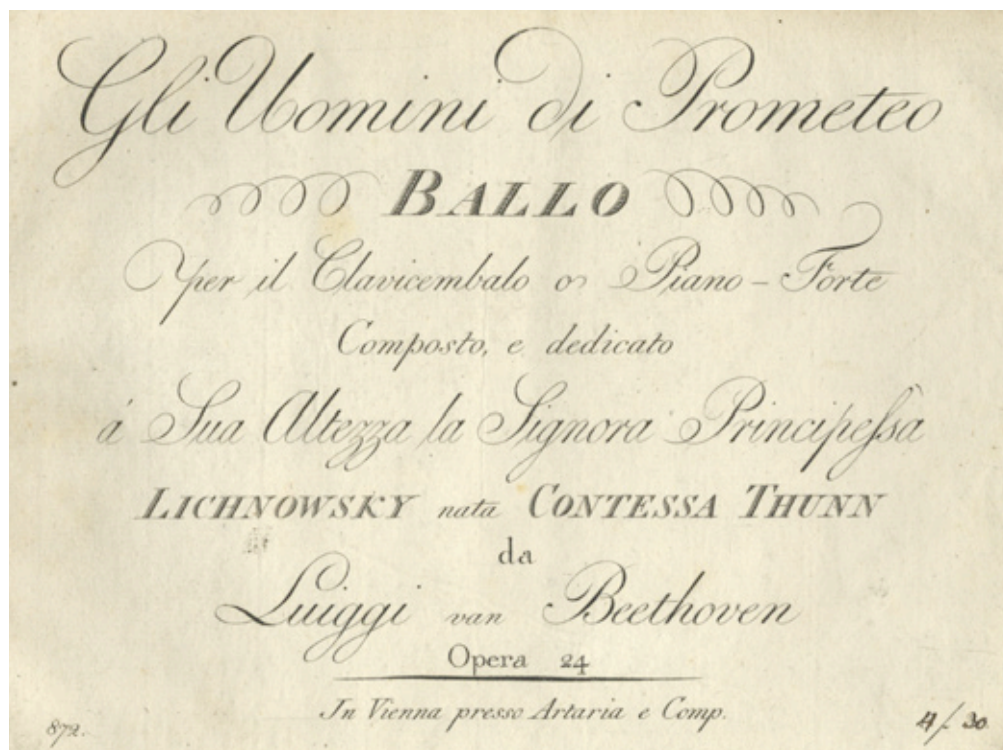 Gli Uomini di Prometeo
BALLO
per il Clavicembalo o Piano-Forte
Composto, e dedicato
á Sua Altezza la Signora Principeſsa
LICHNOWSKY nata CONTESSA THUNN
da
Luiggi van Beethoven
Opera 24
In Vienna presso Artaria e Comp.
872.
4/. 30